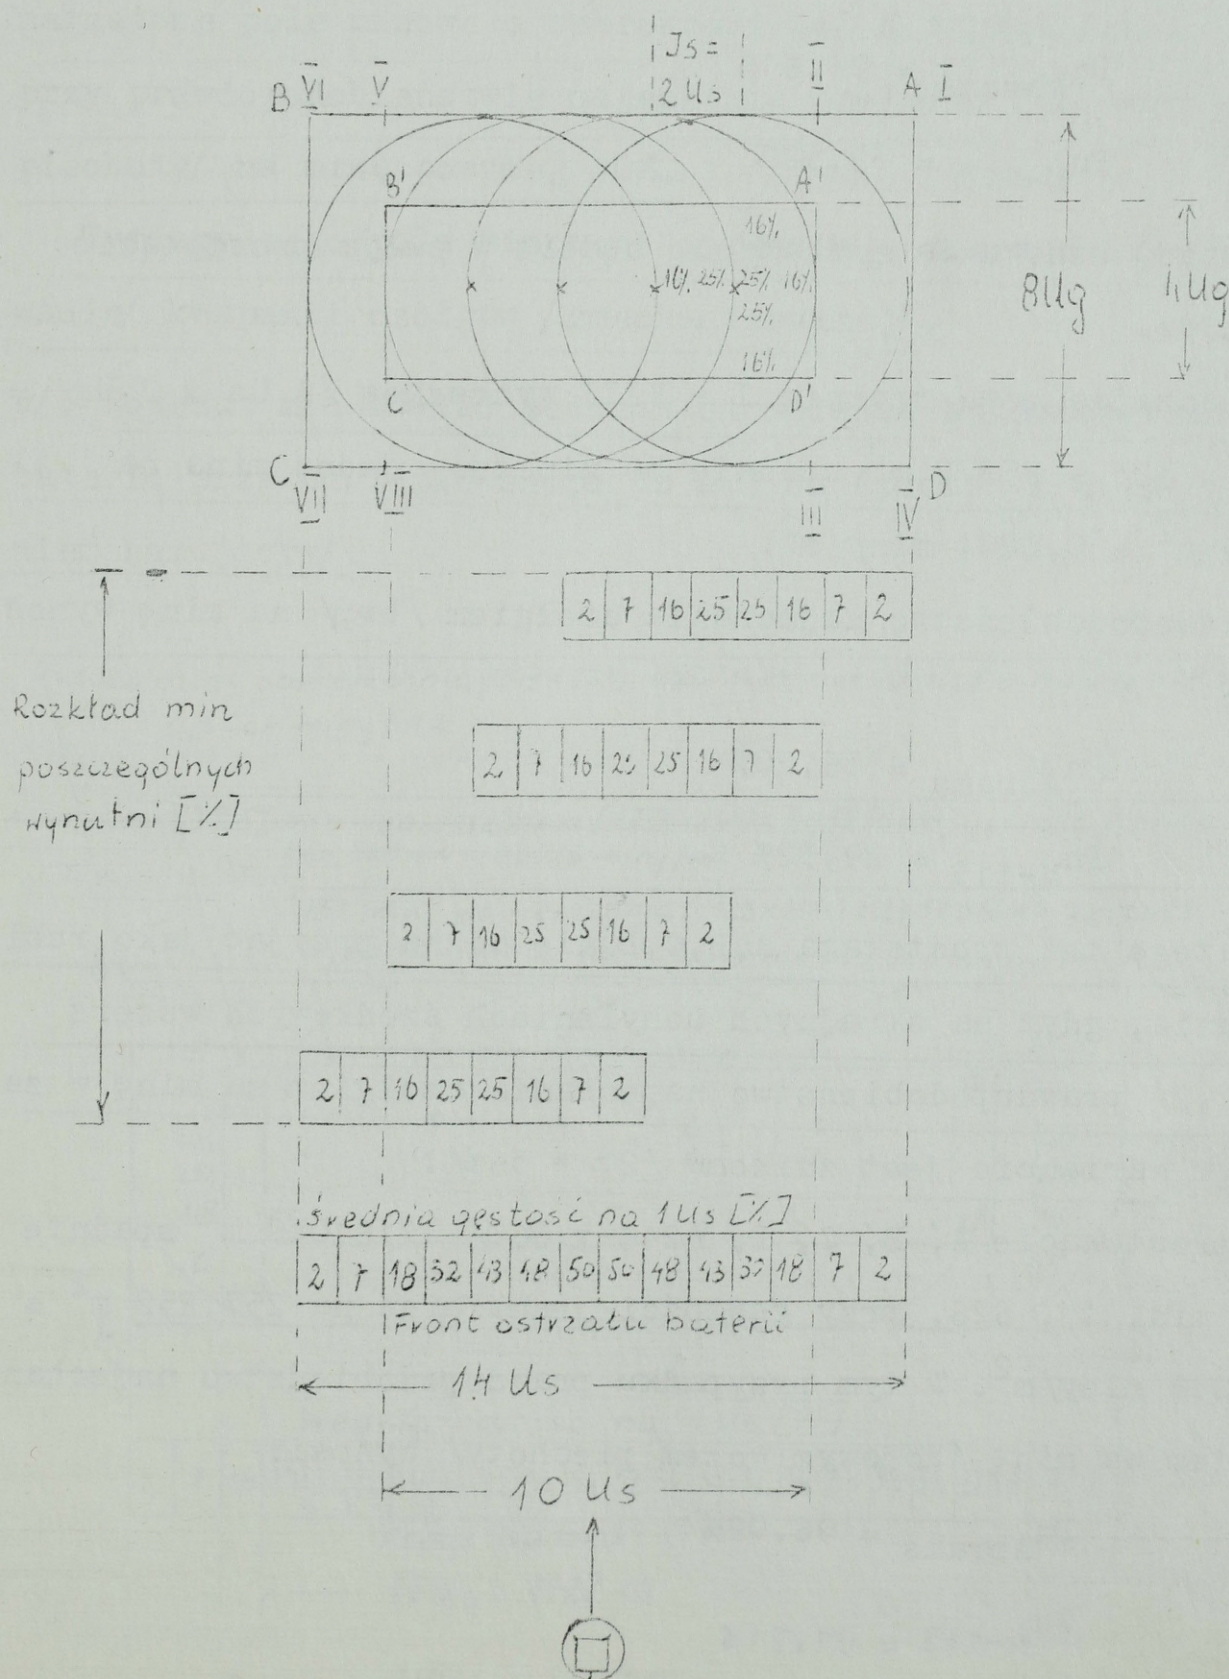 Js =
2 Us
B VI V II A I
B' A'
16%
16% 25% 25% 16%
25%
16%
8Ug 4Ug
C' D'
C VII VIII III IV D
2 7 16 25 25 16 7 2
Rozkład min
poszczególnych
wyrzutni [%]
2 7 16 25 25 16 7 2
2 7 16 25 25 16 7 2
2 7 16 25 25 16 7 2
średnia gęstość na 1Us [%]
2 7 18 32 43 48 50 50 48 43 32 18 7 2
Front ostrzału baterii
14 Us
10 Us